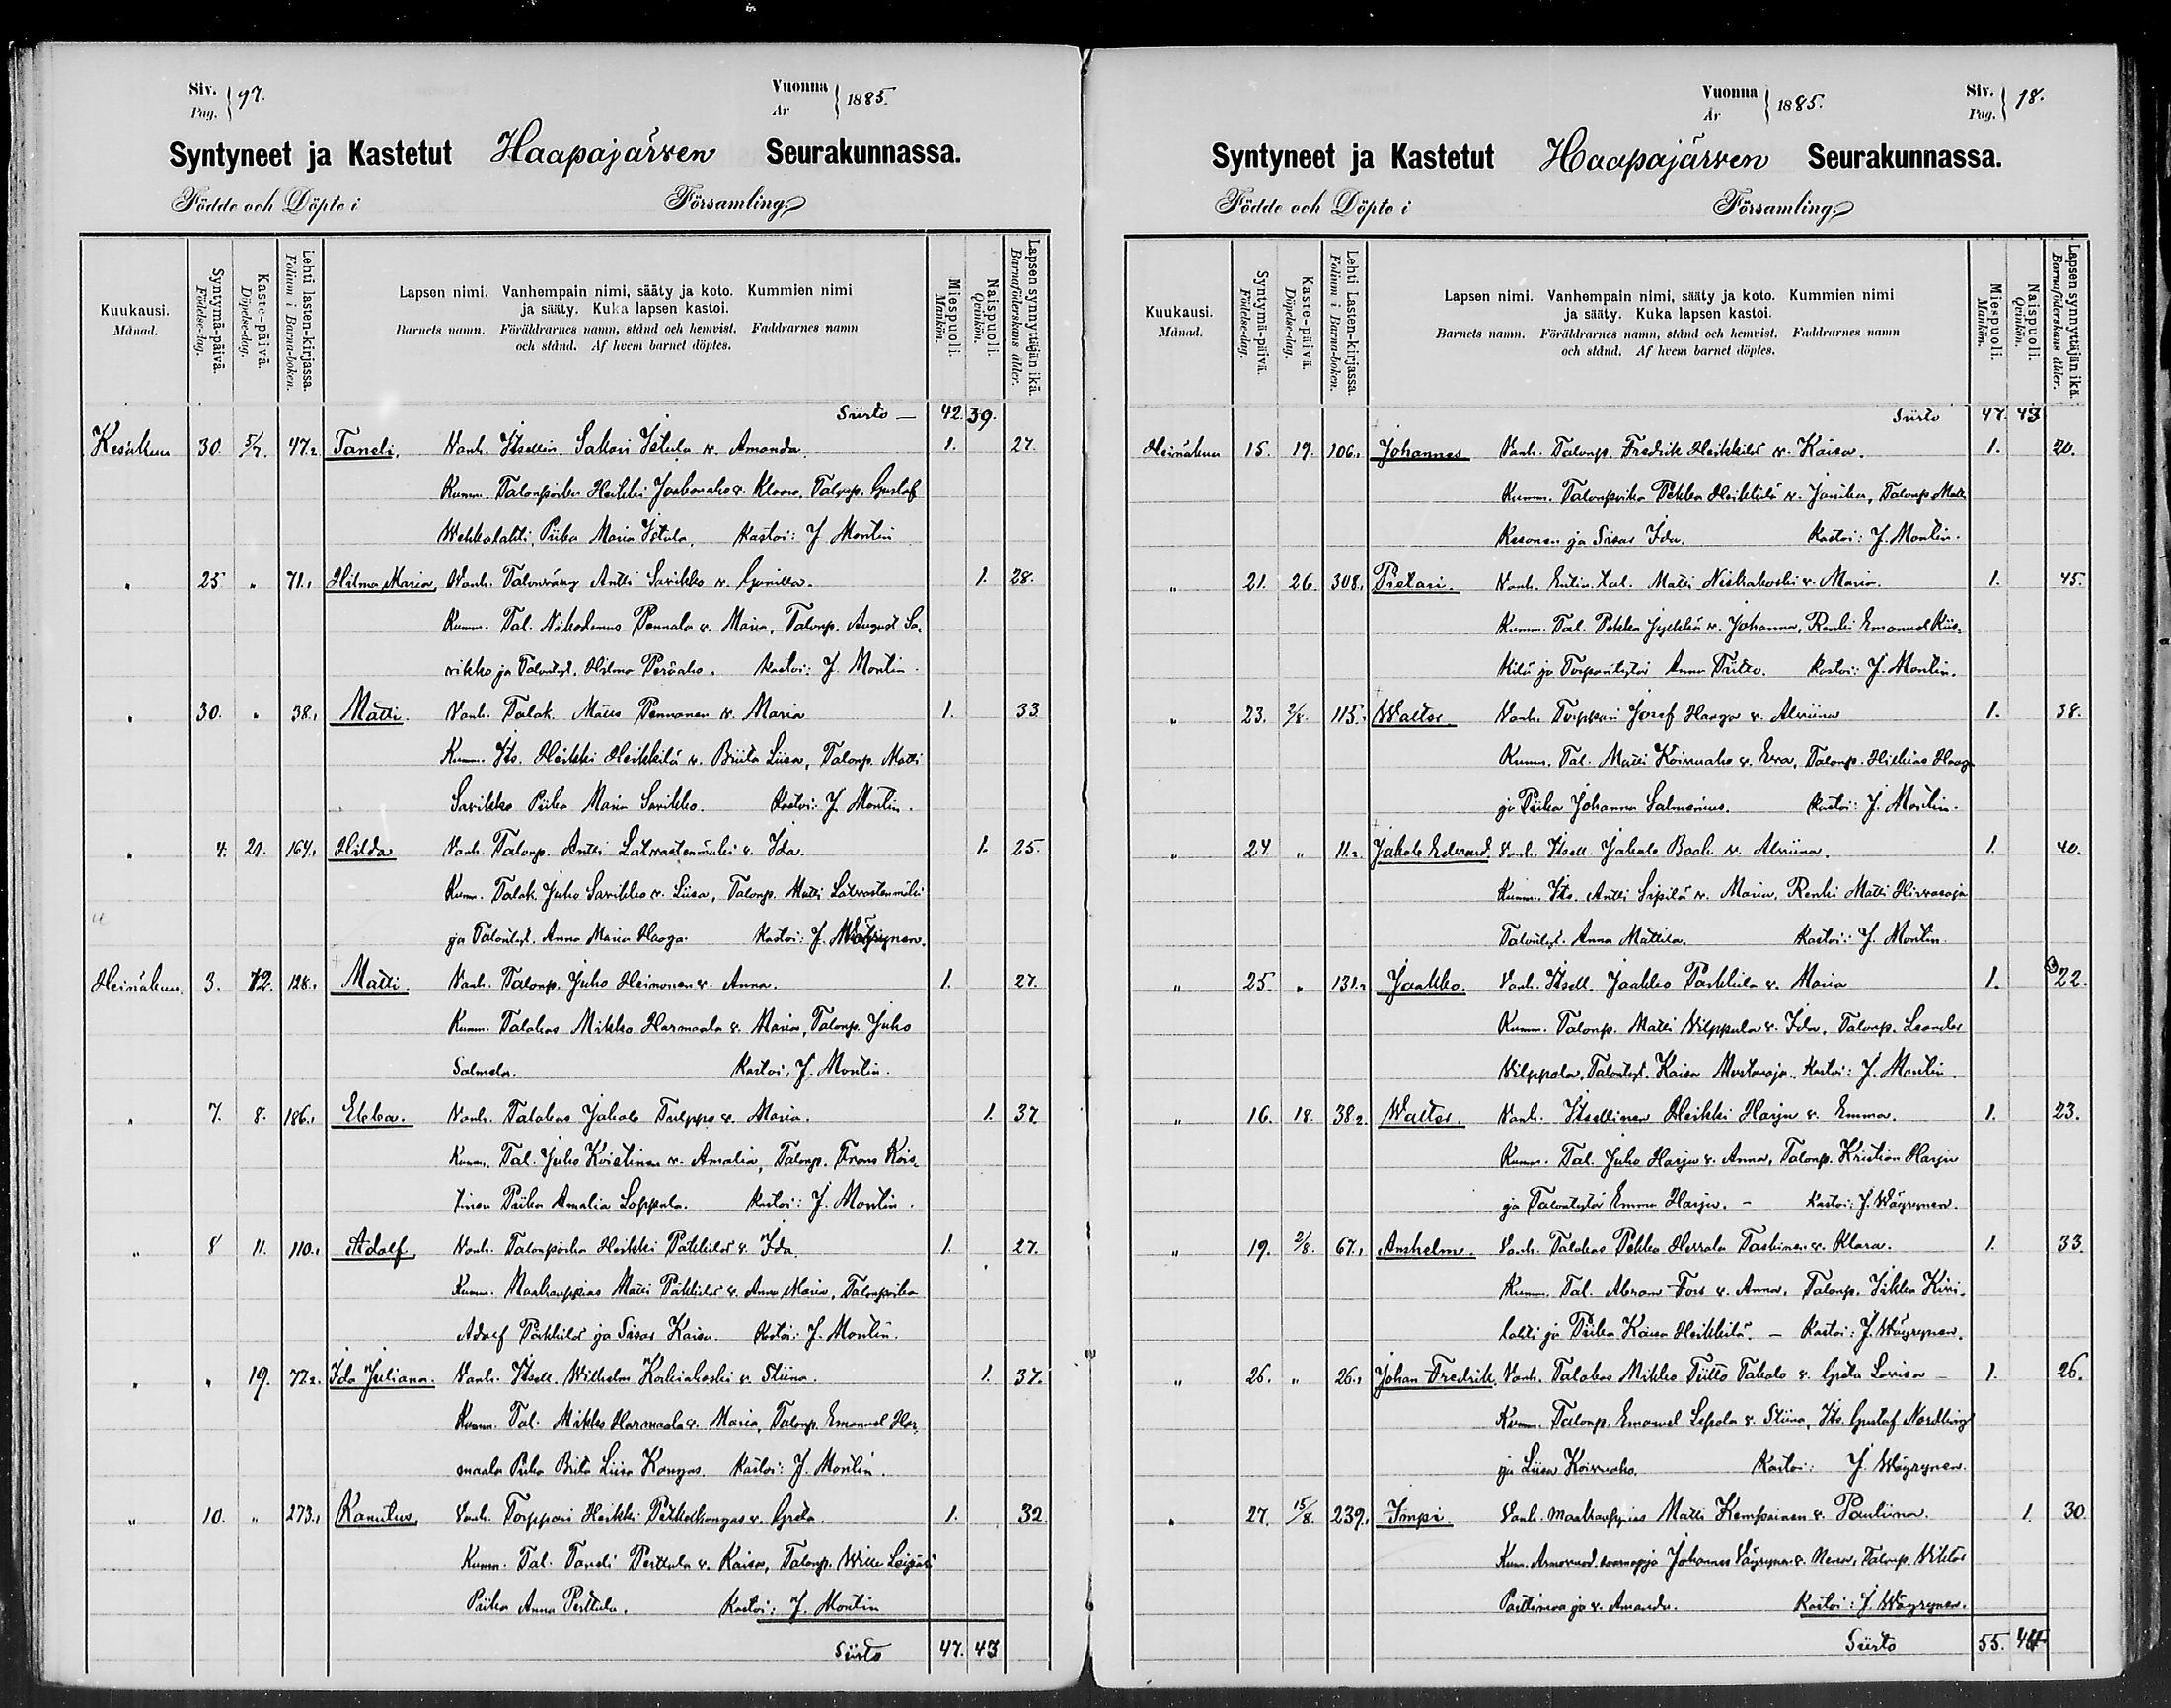 Siv. Pag. } 97.
Vuonna År } 1885.
Syntyneet ja Kastetut Haapajärven Seurakunnassa.
Födde och Döpte i Församling.
Kuukausi. Månad.
Syntymä-päivä. Födelse-dag.
Kaste-päivä. Döpelse-dag.
Lehti lasten-kirjassa. Folium i Barna-boken.
Lapsen nimi. Vanhempain nimi, sääty ja koto. Kummien nimi
ja sääty. Kuka lapsen kastoi.
Barnets namn. Föräldrarnes namn, stånd och hemvist. Faddrarnes namn
och stånd. Af hvem barnet döptes.
Miespuoli. Mankön.
Naispuoli. Qvinkön.
Lapsen synnyttäjän ikä. Barnaföderskans ålder.
Siirto — 42. 39.
Kesäkuu 30. 5/7. 47.2 Taneli. Vanh. Itsellin. Sakari Istula v. Amanda. 1. 27.
Kumm. Talonpoika Heikki v. Klaara, Talonp. Gustaf
Wehkalahti, Piika Maria Istula. Kastoi: J. Montin
" 25 " 71.1 Hilma Maria, Vanh. Talonvävy Antti Savikko v. Gunilla. 1. 28.
Kumm. Tal. Nikodemus Pennala v. Maria, Talonp. August Sa-
vikko ja Talontyt. Hilma Peräaho. Kastoi: J. Montin.
" 30. " 38.1 Matti. Vanh. Talok. Matts Pennanen v. Maria 1. 33
Kumm. Its. Heikki Heikkilä v. Briita Liisa, Talonp. Matti
Savikko Piika Maria Savikko. Kastoi: J. Montin.
" 4. 21. 164.1 Hilda Vanh. Talonp. Antti Latvastenmäki v. Ida. 1. 25.
Kumm. Talok. Juho Savikko v. Liisa, Talonp. Matti Latvastenmäki
ja Talontyt. Anna Maria Haaga. Kastoi: J. Wäyrynen.
Heinäkuu. 3. 12. 128.1 Matti. Vanh. Talonp. Juho Heimonen v. Anna. 1. 27.
Kumm. Talokas Mikko Harmaala v. Maria, Talonp. Juho
Salmela. Kastoi, J. Montin.
" 7. 8. 186.1 Elsba. Vanh. Talokas Jakob Tulppo v. Maria. 1. 37
Kumm. Tal. Juho Koistinen v. Amalia, Talonp. Frans Kois-
tinen Piika Amalia Loppula. Kastoi: J. Montin.
" 8 11. 110.1 Adolf. Vanh. Talonpoika Heikki Päkkilä v. Ida. 1. 27.
Kumm. Maakauppias Matti Päkkilä v. Anna Maria, Talonpoika
Adolf Päkkilä ja Sisar Kaisa. Kastoi: J. Montin.
" " 19. 77.2 Ida Juliana. Vanh. Itsell. Wilhelm Korkiakoski v. Stiina. 1. 37.
Kumm. Tal. Mikko Harmaala v. Maria, Talonp. Emanuel Har-
maala Piika Brita Liisa Kangas. Kastoi: J. Montin.
" 10. " 273.1 Kanutus, Vanh. Torppari Heikki Pitkäkangas v. Greta. 1. 32.
Kumm. Tal. Taneli Perttula v. Kaisa, Talonp. Wille
Piika Anna Perttula. Kastoi: J. Montin
Siirto 47. 43
Vuonna År } 1885.
Siv. Pag. } 18.
Syntyneet ja Kastetut Haapajärven Seurakunnassa.
Födde och Döpte i Församling.
Kuukausi. Månad.
Syntymä-päivä. Födelse-dag.
Kaste-päivä. Döpelse-dag.
Lehti Lasten-kirjassa. Folium i Barna-boken.
Lapsen nimi. Vanhempain nimi, sääty ja koto. Kummien nimi
ja sääty. Kuka lapsen kastoi.
Barnets namn. Föräldrarnes namn, stånd och hemvist. Faddrarnes namn
och stånd. Af hvem barnet döptes.
Miespuoli. Mankön.
Naispuoli. Qvinkön.
Lapsen synnyttäjän ikä. Barnaföderskans ålder.
Siirto 47. 43
Heinäkuu 15. 19. 106.1 Johannes Vanh. Talonp. Fredrik Heikkilä v. Kaisa. 1. 20.
Kumm. Talonpoika Pekka Heikkilä v. Jaaika, Talonp. Matti
Kesonen ja Sisar Ida. Kastoi: J. Montin.
" 21. 26. 308.1 Pietari. Vanh. Entin. tal. Matti Niskakoski v. Maria. 1. 45.
Kumm. Tal. Pekka Jyrkkä v. Johanna, Renki Emanuel Kiis-
kilä ja Torparityttö Anna Tiitto. Kastoi: J. Montin.
" 23. 2/8. 115.2 Walter Vanh. Torppari Josef Haaga v. Alviina 1. 38.
Kumm. Tal. Matti Koivuaho v. Eva, Talonp. Hiskias Haaga
ja Piika Johanna Salmenius. Kastoi: J. Montin.
" 24. " 11.2 Jakob Edvard. Vanh. Itsell. Jakob Baak v. Alviina. 1. 40.
Kumm. Its. Antti Sipilä v. Maria, Renki Matti Hirvasoja
Talontyt. Anna Mattila. Kastoi: J. Montin.
" 25. " 131.2 Jaakko. Vanh. Itsell. Jaakko Parkkila v. Maria 1. 22.
Kumm. Talonp. Matti Wilppola v. Ida, Talonp. Leander
Wilppola, Talontyt. Kaisa Mustaoja, Kastoi: J. Montin.
" 16. 18. 38.2 Walter. Vanh. Itsellinen Heikki Harju v. Emma. 1. 23.
Kumm. Tal. Juho Harju v. Anna, Talonp. Kristian Harju
ja Talontyttö Emma Harju. — Kastoi: J. Wäyrynen.
" 19. 2/8. 67.1 Anshelm. Vanh. Talokas Pekka Herrala Taskinen v. Klara. 1. 33.
Kumm. Tal. Abram Fors v. Anna, Talonp. Iikka Kivi-
lahti ja Piika Kaisa Heikkilä. — Kastoi: J. Wäyrynen.
" 26. " 26.1 Johan Fredrik. Vanh. Talokas Mikko Tiitto Takalo v. Greta Lovisa — 1. 26.
Kumm. Talonp. Emanuel Lepola v. Stiina, Its. Gustaf Nordling
ja Liisa Koivuaho. Kastoi: J. Wäyrynen.
" 27. 15/8. 239.1 Impi. Vanh. Maakauppias Matti Kemppainen v. Pauliina. 1. 30.
Kum. Armovuod. saarnaaja Johannes Väyrynen v. Nanna, Talonp. Viktor
ja v. Amanda. Kastoi: J. Wäyrynen.
Siirto 55. 44